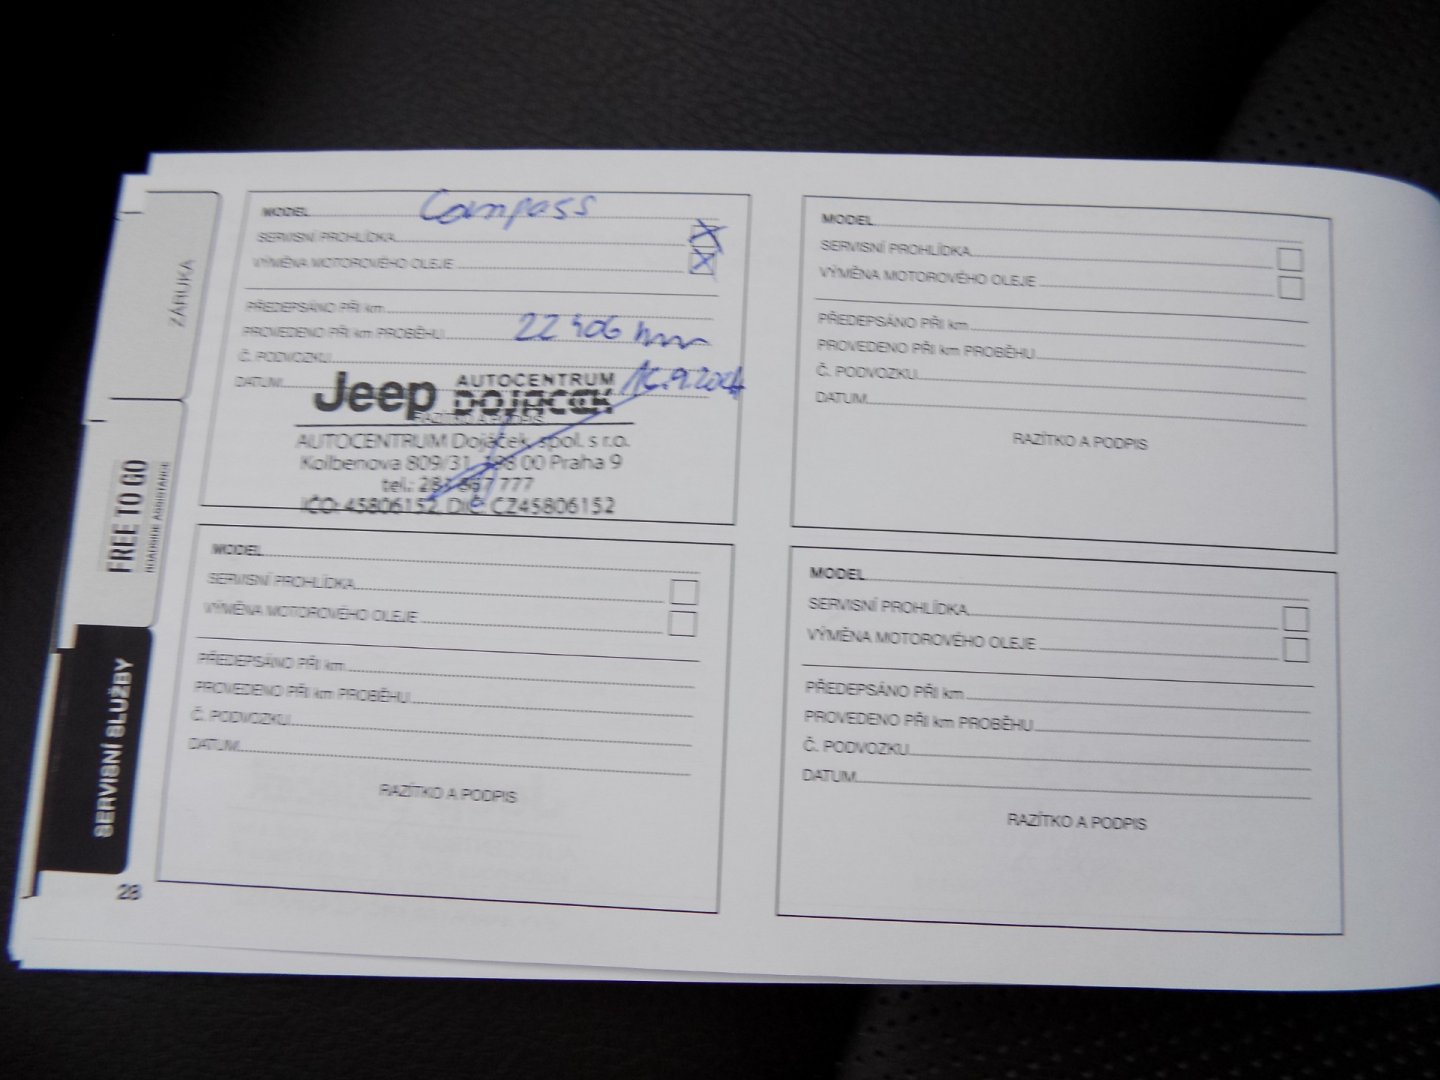 ZÁRUKA
FREE TO GO
ROADSIDE ASSISTANCE
SERVISNÍ SLUŽBY
28
MODEL Compass
SERVISNÍ PROHLÍDKA X
VÝMĚNA MOTOROVÉHO OLEJE X
PŘEDEPSÁNO PŘI km
PROVEDENO PŘI km PROBĚHU 22 406
Č. PODVOZKU
DATUM
Jeep AUTOCENTRUM
DOJÁČEK
RAZÍTKO A PODPIS
AUTOCENTRUM Dojáček, spol. s r.o.
Kolbenova 809/31, 198 00 Praha 9
tel.: 777
IČO: 45806152, DIČ: CZ45806152
MODEL
SERVISNÍ PROHLÍDKA
VÝMĚNA MOTOROVÉHO OLEJE
PŘEDEPSÁNO PŘI km
PROVEDENO PŘI km PROBĚHU
Č. PODVOZKU
DATUM
RAZÍTKO A PODPIS
MODEL
SERVISNÍ PROHLÍDKA
VÝMĚNA MOTOROVÉHO OLEJE
PŘEDEPSÁNO PŘI km
PROVEDENO PŘI km PROBĚHU
Č. PODVOZKU
DATUM
RAZÍTKO A PODPIS
MODEL
SERVISNÍ PROHLÍDKA
VÝMĚNA MOTOROVÉHO OLEJE
PŘEDEPSÁNO PŘI km
PROVEDENO PŘI km PROBĚHU
Č. PODVOZKU
DATUM
RAZÍTKO A PODPIS